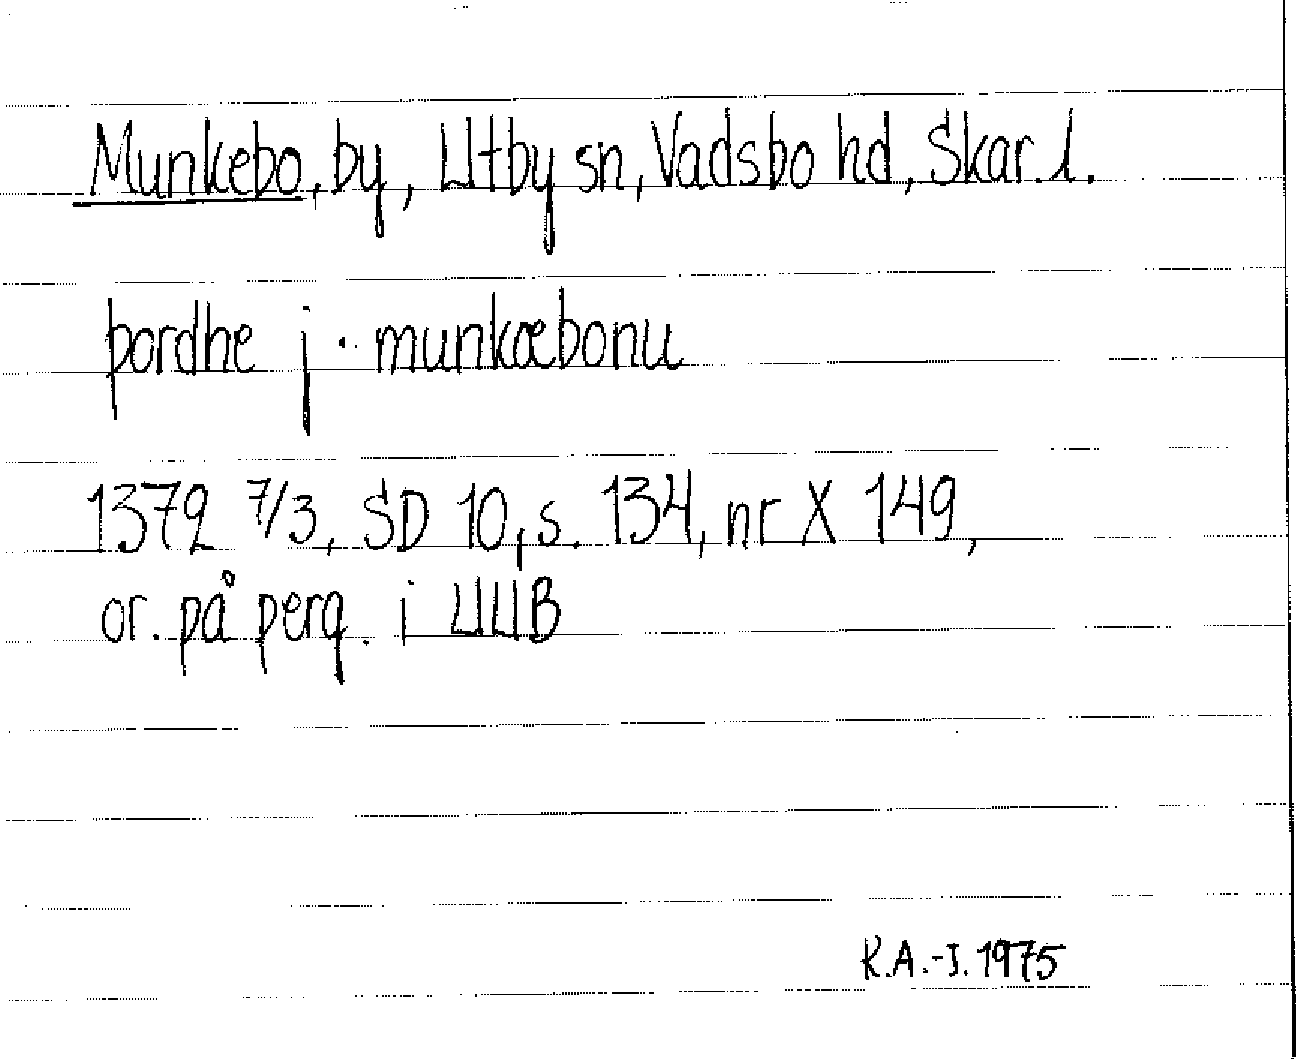 Munkebo, by, Utby sn, Vadsbo hd, Skar. l.
þordhe j · munkæbonu
1372 7/3, SD 10, s. 134, nr X 149,
or. på perg. i UUB
K.A.-I. 1975